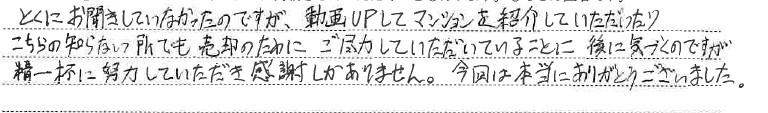 とくにお聞きしていなかったのですが、動画UPしてマンションを紹介していただいたり
こちらの知らない所でも売却のために ご尽力していただいていることに 後に気づくのですが
精一杯に努力していただき感謝しかありません。今回は本当にありがとうございました。